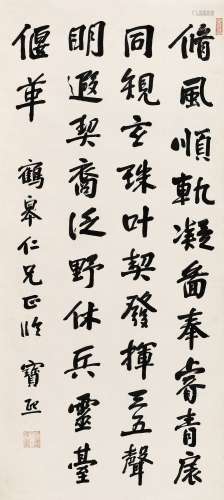 脩風順軌凝圖奉睿青扆
同規玄珠叶契發揮三五聲
明遐契裔泛野休兵靈臺
偃革
鶴皋仁兄正腕 寶熙